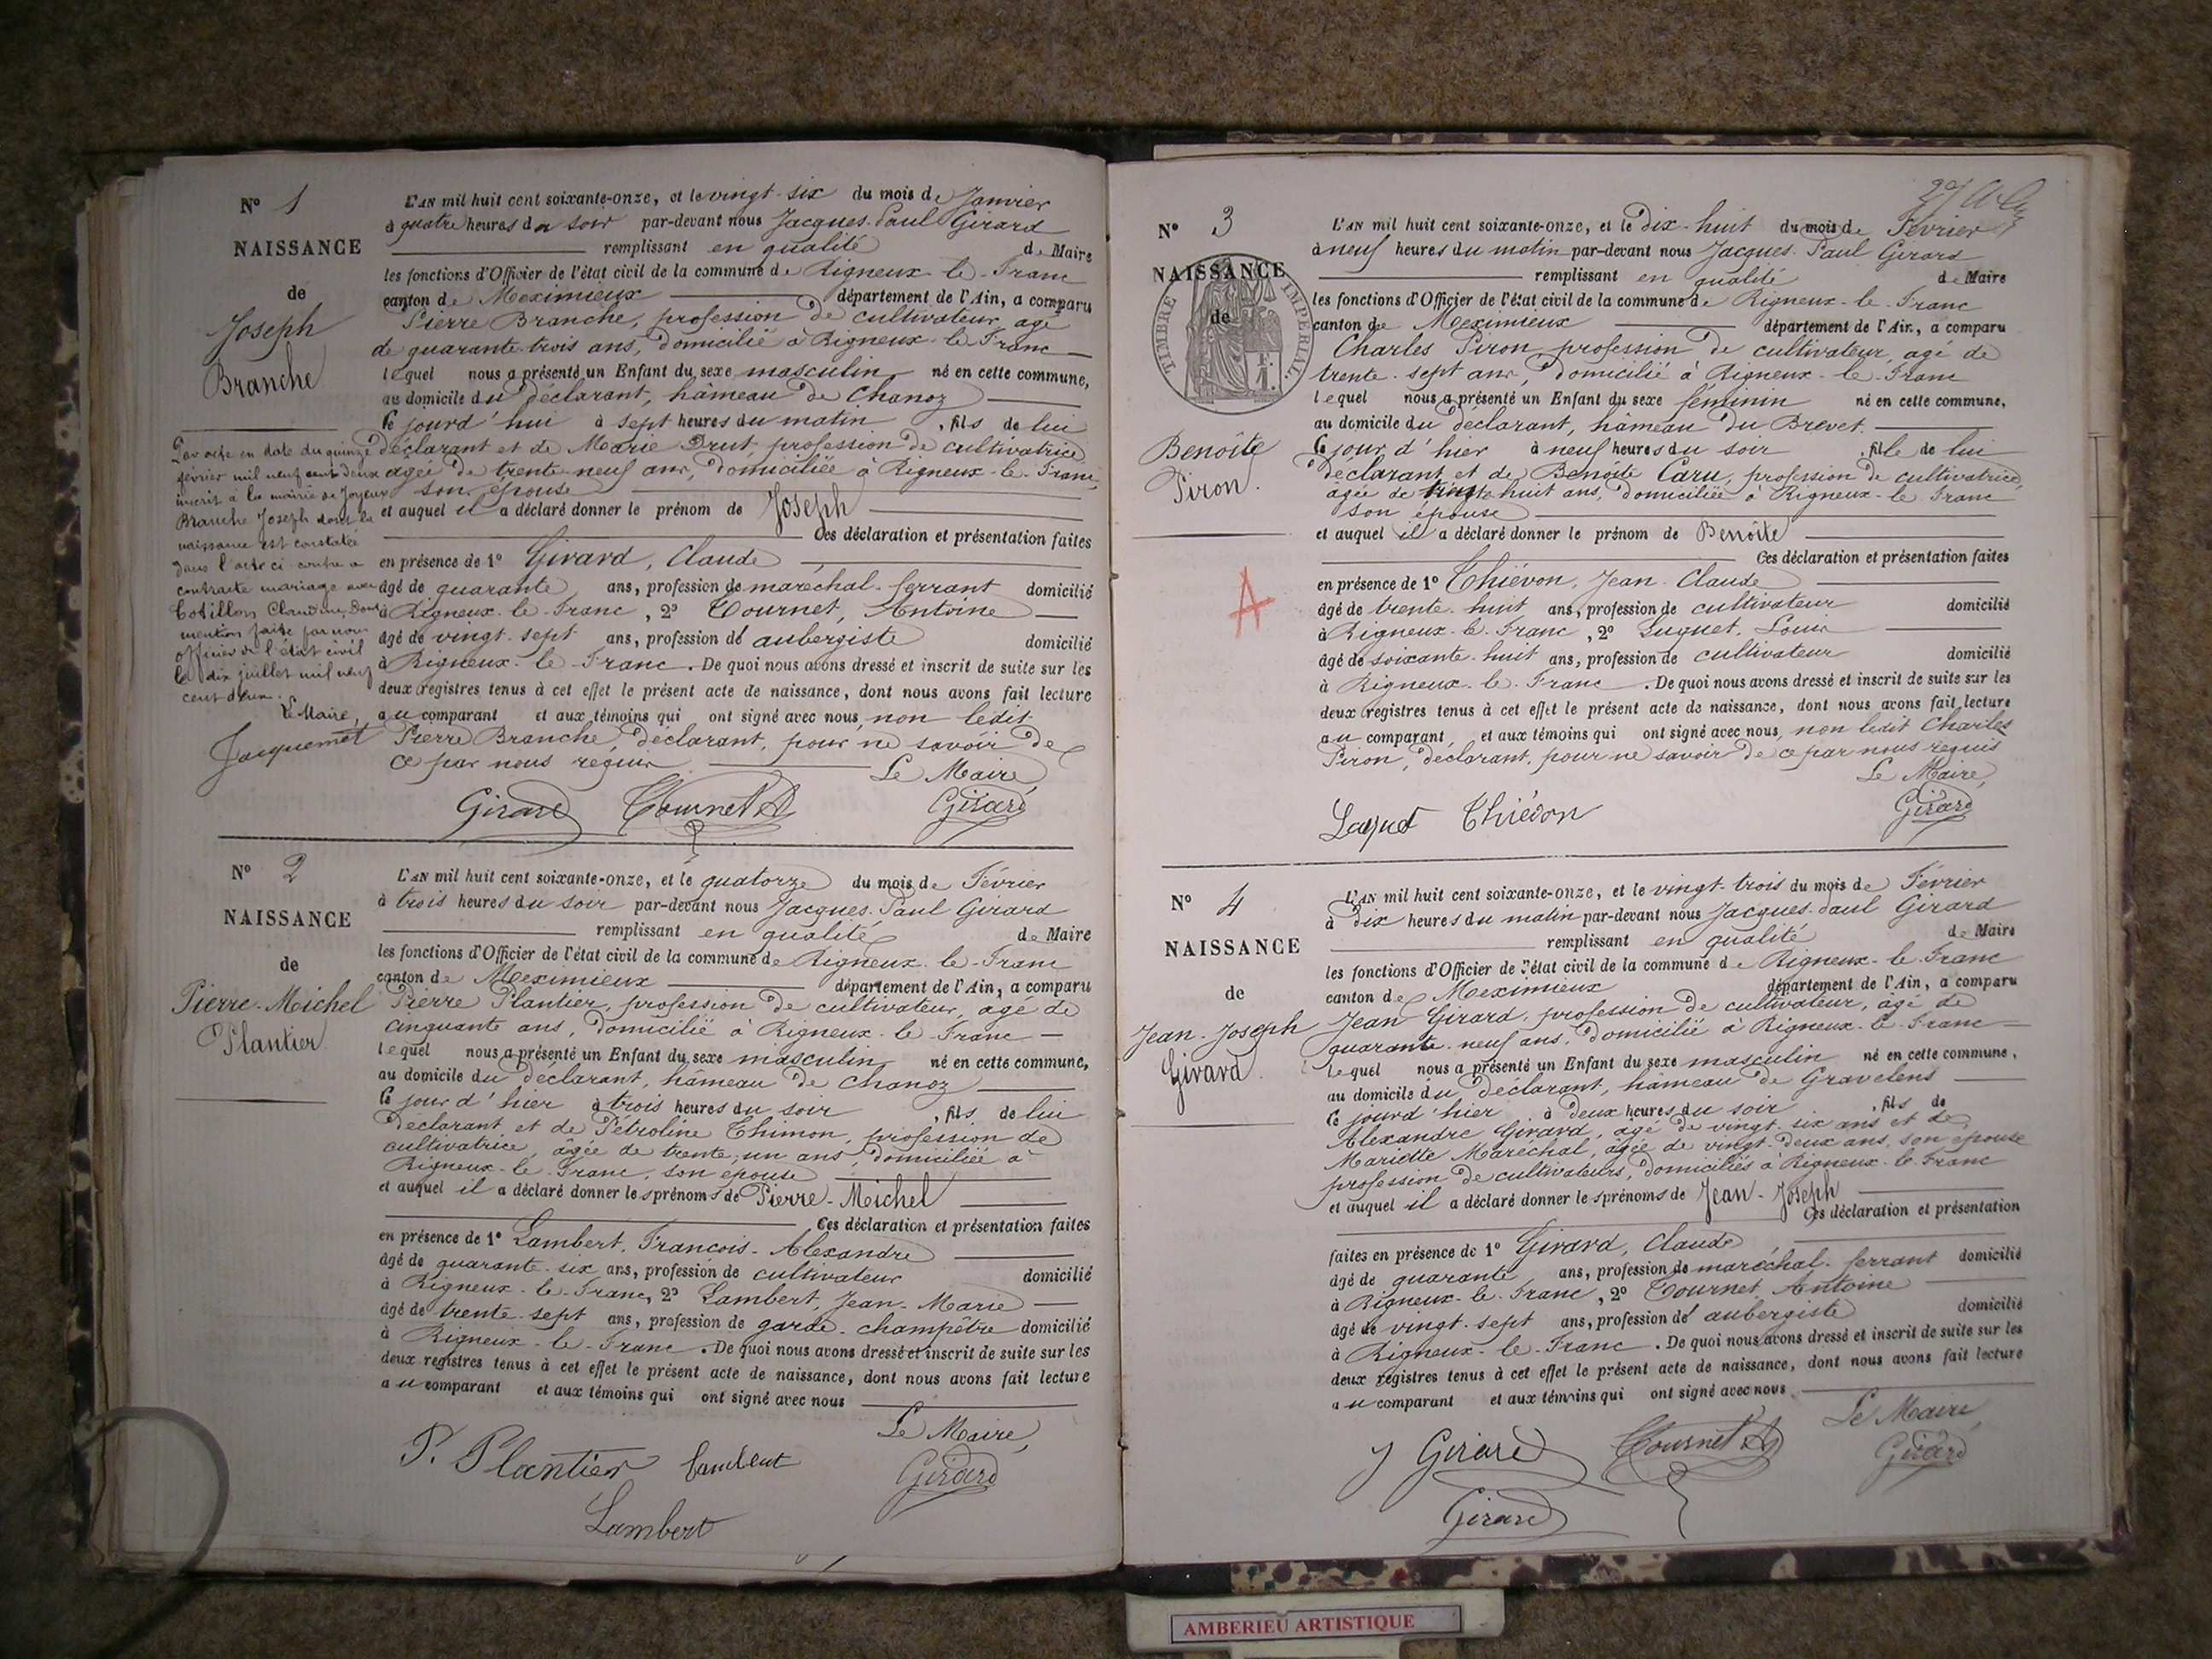 N° 1
NAISSANCE
de
Joseph
Branche
L'AN mil huit cent soixante-onze, et le vingt-six du mois de Janvier
à quatre heures du soir par-devant nous Jacques-Paul Girard
remplissant en qualité de Maire
les fonctions d'Officier de l'état civil de la commune de Rigneux-le-Franc
canton de Meximieux département de l'Ain, a comparu
Pierre Branche, profession de cultivateur, agé
de quarante-trois ans, domicilié à Rigneux-le-Franc
lequel nous a présenté un Enfant du sexe masculin né en cette commune,
au domicile du déclarant, hâmeau de Chanoz
ce jourd'hui à sept heures du matin, fils de lui
déclarant et de Marie Brut, profession de cultivatrice
agée de trente-neuf ans, domiciliée à Rigneux-le-Franc,
son épouse
et auquel il a déclaré donner le prénom de Joseph
Ces déclaration et présentation faites
en présence de 1° Girard, Claude
âgé de quarante ans, profession de maréchal-ferrant domicilié
à Rigneux-le-Franc, 2° Tournet, Antoine
âgé de vingt-sept ans, profession de aubergiste domicilié
à Rigneux-le-Franc. De quoi nous avons dressé et inscrit de suite sur les
deux registres tenus à cet effet le présent acte de naissance, dont nous avons fait lecture
au comparant et aux témoins qui ont signé avec nous, non ledit
Pierre Branche, déclarant, pour ne savoir de
ce par nous requis
Le Maire,
Girard Tournet A Girard
Par acte en date du quinze
février mil neuf cent deux
inscrit à la mairie de Joyeux
Branche Joseph dont la
naissance est constatée
dans l'acte ci contre a
contracté mariage avec
Cotillon Claudine, dont
mention faite par nous
officier de l'état civil
le dix juillet mil neuf
cent deux.
Le Maire,
Jacquemet
N° 2
NAISSANCE
de
Pierre-Michel
Plantier
L'AN mil huit cent soixante-onze, et le quatorze du mois de Février
à trois heures du soir par-devant nous Jacques-Paul Girard
remplissant en qualité de Maire
les fonctions d'Officier de l'état civil de la commune de Rigneux-le-Franc
canton de Meximieux département de l'Ain, a comparu
Pierre Plantier, profession de cultivateur, agé de
cinquante ans, domicilié à Rigneux-le-Franc
lequel nous a présenté un Enfant du sexe masculin né en cette commune,
au domicile du déclarant, hâmeau de Chanoz
ce jourd'hier à trois heures du soir, fils de lui
déclarant et de Pétroline Thimon, profession de
cultivatrice, âgée de trente-un ans, domiciliée à
Rigneux-le-Franc, son épouse
et auquel il a déclaré donner les prénoms de Pierre-Michel
Ces déclaration et présentation faites
en présence de 1° Lambert, François-Alexandre
âgé de quarante-six ans, profession de cultivateur domicilié
à Rigneux-le-Franc, 2° Lambert, Jean-Marie
âgé de trente-sept ans, profession de garde-champêtre domicilié
à Rigneux-le-Franc. De quoi nous avons dressé et inscrit de suite sur les
deux registres tenus à cet effet le présent acte de naissance, dont nous avons fait lecture
au comparant et aux témoins qui ont signé avec nous
Le Maire,
P. Plantier Lambert Girard
Lambert
N° 3
NAISSANCE
de
TIMBRE IMPERIAL
Benoîte
Piron
A
L'AN mil huit cent soixante-onze, et le dix-huit du mois de Février
à neuf heures du matin par-devant nous Jacques-Paul Girard
remplissant en qualité de Maire
les fonctions d'Officier de l'état civil de la commune de Rigneux-le-Franc
canton de Meximieux département de l'Ain, a comparu
Charles Piron profession de cultivateur, agé de
trente-sept ans, domicilié à Rigneux-le-Franc
lequel nous a présenté un Enfant du sexe féminin né en cette commune,
au domicile du déclarant, hâmeau du Brevet
ce jourd'hier à neuf heures du soir, fille de lui
déclarant et de Benoîte Caru, profession de cultivatrice,
agée de huit ans, domiciliée à Rigneux-le-Franc
son épouse
et auquel il a déclaré donner le prénom de Benoîte
Ces déclaration et présentation faites
en présence de 1° Thiévon, Jean-Claude
âgé de trente-huit ans, profession de cultivateur domicilié
à Rigneux-le-Franc, 2° Luquet, Louis
âgé de soixante-huit ans, profession de cultivateur domicilié
à Rigneux-le-Franc. De quoi nous avons dressé et inscrit de suite sur les
deux registres tenus à cet effet le présent acte de naissance, dont nous avons fait lecture
au comparant, et aux témoins qui ont signé avec nous, non ledit Charles
Piron, déclarant, pour ne savoir de ce par nous requis
Le Maire,
Luquet Thiévon Girard
N° 4
NAISSANCE
de
Jean-Joseph
Girard
L'AN mil huit cent soixante-onze, et le vingt-trois du mois de Février
à dix heures du matin par-devant nous Jacques-Paul Girard
remplissant en qualité de Maire
les fonctions d'Officier de l'état civil de la commune de Rigneux-le-Franc
canton de Meximieux département de l'Ain, a comparu
Jean Girard, profession de cultivateur, agé de
quarante-neuf ans, domicilié à Rigneux-le-Franc
lequel nous a présenté un Enfant du sexe masculin né en cette commune,
au domicile du déclarant, hâmeau de Gravelens
ce jourd'hier à deux heures du soir, fils de
Alexandre Girard, agé de vingt-six ans et de
Mariette Maréchal, agée de vingt-deux ans, son épouse
profession de cultivateurs, domiciliés à Rigneux-le-Franc
et auquel il a déclaré donner les prénoms de Jean-Joseph
Ces déclaration et présentation
faites en présence de 1° Girard, Claude
âgé de quarante ans, profession de maréchal-ferrant domicilié
à Rigneux-le-Franc, 2° Tournet, Antoine
âgé de vingt-sept ans, profession de aubergiste domicilié
à Rigneux-le-Franc. De quoi nous avons dressé et inscrit de suite sur les
deux registres tenus à cet effet le présent acte de naissance, dont nous avons fait lecture
au comparant et aux témoins qui ont signé avec nous
Le Maire,
J Girard Tournet A Girard
Girard
AMBERIEU ARTISTIQUE